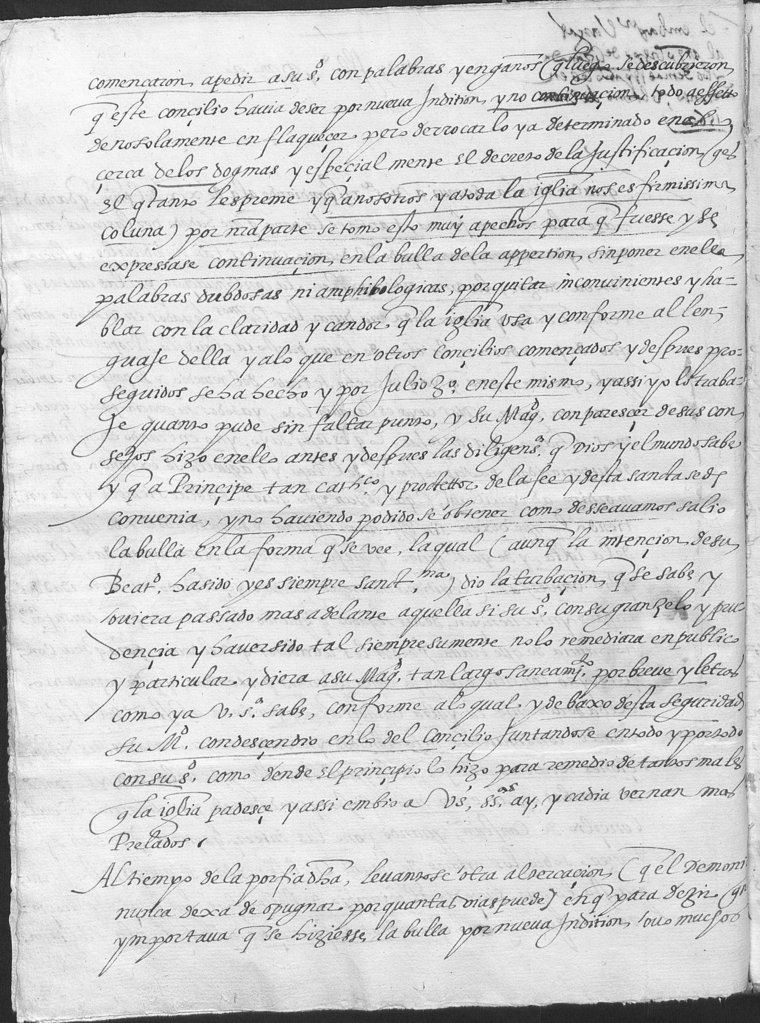 comencaron apedir a su sᵈ. con palabras y engaños (q luego se descubrieron
q este conçilio havia de ser por nueva Indition, y no continuaçion, todo a effetto
de no solamente enflaqueçer pero derrocar lo ya determinado en el
çerca de los dogmas y espeçialmente el decreto de la Justificaçion (q es
el q tanto les preme y q a nosotros y a toda la iglia nos es firmissima
coluna) por nr̃a parte se tomo esto muy a pechos para q fuesse y se
expressase continuaçion, en la bulla de la appertion, sin poner en ella
palabras dubdosas ni amphibologicas, por quitar inconvinientes y ha-
blar con la claridad y candor q la iglia usa y conforme al len-
guaje della y a lo que en otros Conçilios començados y despues pro-
seguidos se ha hecho y por Julio 3o. en este mismo, y assi yo lo traba-
Je quanto pude sin faltar punto, y su Magᵈ. con paresçer de sus con
sejos hizo en ello antes y despues las diligensᵃ. q Dios y el mundo sabe
y q a Prinçipe tan cathᶜᵒ y protettor de la fee y desta santa sede
convenia, y no haviendo podido se obtener como desseavamos salio
la bulla en la forma q se vee, la qual (aunq la intençion de su
Beatᵈ. ha sido y es siempre sanctᵐᵃ) dio la turbaçion q se sabe y
huviera passado mas adelante aquella si su sᵈ. con su gran zelo y pru
dençia y haver sido tal siempre su mente no lo remediara en publico
y particular y diera a su Magᵈ. tan largo saneamᵗᵒ. por breve y letras
como ya V. Sᵃ. sabe, conforme a lo qual y debaxo desta seguridad
su Mᵈ. condesçendio en lo del Conçilio Juntandose en todo y por todo
con su sᵈ. como dende el prinçipio lo hizo para remedio de tantos males
q la iglia padesçe y assi embio a Vs. ssᵃˢ ay, y cadia vernan mas
Prelados.
Al tiempo de la porfia dha, levantose otra altercaçion (q el Demonio
nunca dexa de opugnar por quantas vias puede) en q para dezir q
ymportava q se hiziesse la bulla por nueva Indition, huvo muchos